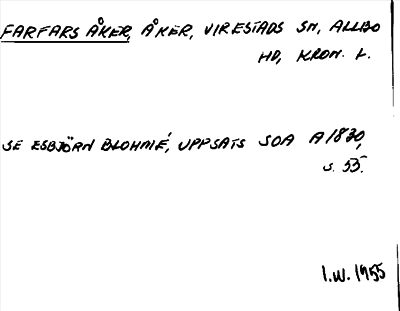 FARFARS ÅKER, ÅKER, VIRESTADS SN, ALLBO
HD, KRON. L.
SE ESBJÖRN BLOHMÉ, UPPSATS SOA A1830,
S. 55.
I.W. 1955